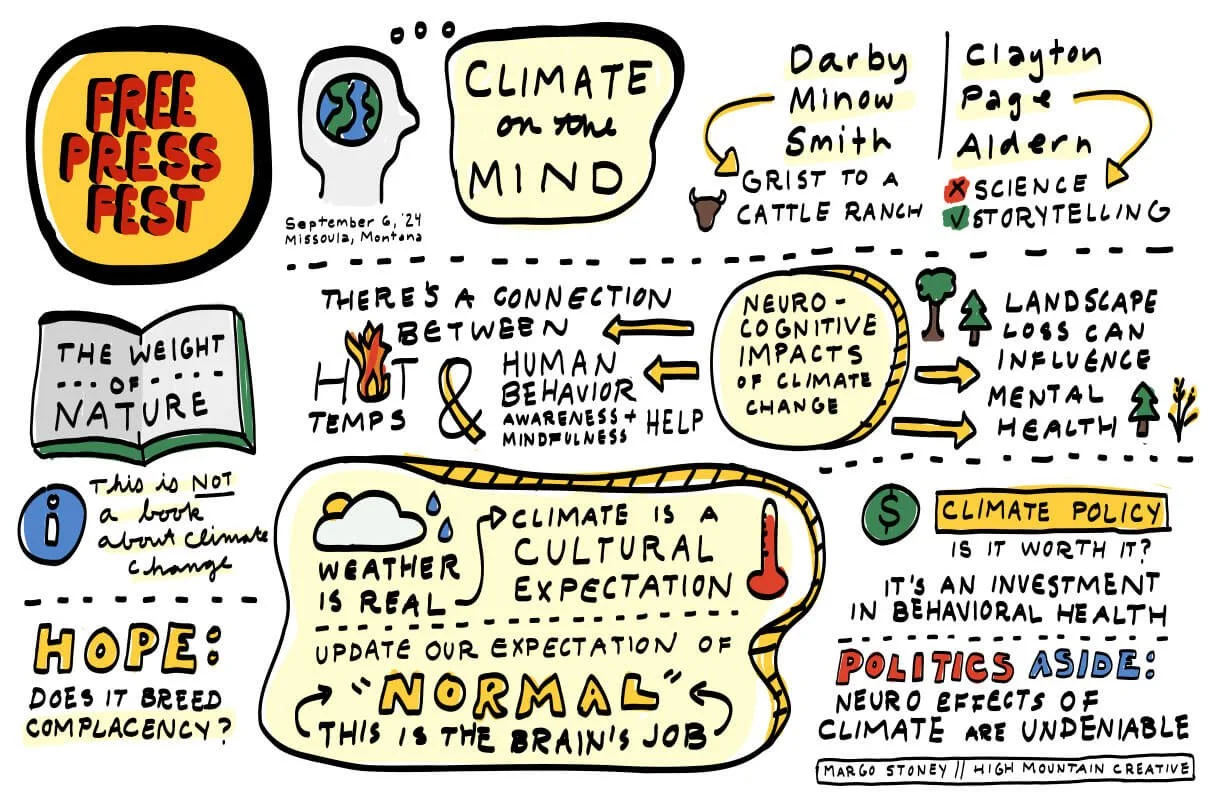 FREE
PRESS
FEST
September 6, '24
Missoula, Montana
CLIMATE
on the
MIND
Darby
Minow
Smith
GRIST TO A
CATTLE RANCH
Clayton
Page
Aldern
X SCIENCE
✓ STORYTELLING
THE WEIGHT
OF
NATURE
This is NOT
a book
about climate
change
HOPE:
DOES IT BREED
COMPLACENCY?
THERE'S A CONNECTION
BETWEEN
HOT
TEMPS
&
HUMAN
BEHAVIOR
AWARENESS +
MINDFULNESS
HELP
NEURO-
COGNITIVE
IMPACTS
OF CLIMATE
CHANGE
LANDSCAPE
LOSS CAN
INFLUENCE
MENTAL
HEALTH
WEATHER
IS REAL
CLIMATE IS A
CULTURAL
EXPECTATION
UPDATE OUR EXPECTATION OF
"NORMAL"
THIS IS THE BRAIN'S JOB
$
CLIMATE POLICY
IS IT WORTH IT?
IT'S AN INVESTMENT
IN BEHAVIORAL HEALTH
POLITICS ASIDE:
NEURO EFFECTS OF
CLIMATE ARE UNDENIABLE
MARGO STONEY // HIGH MOUNTAIN CREATIVE